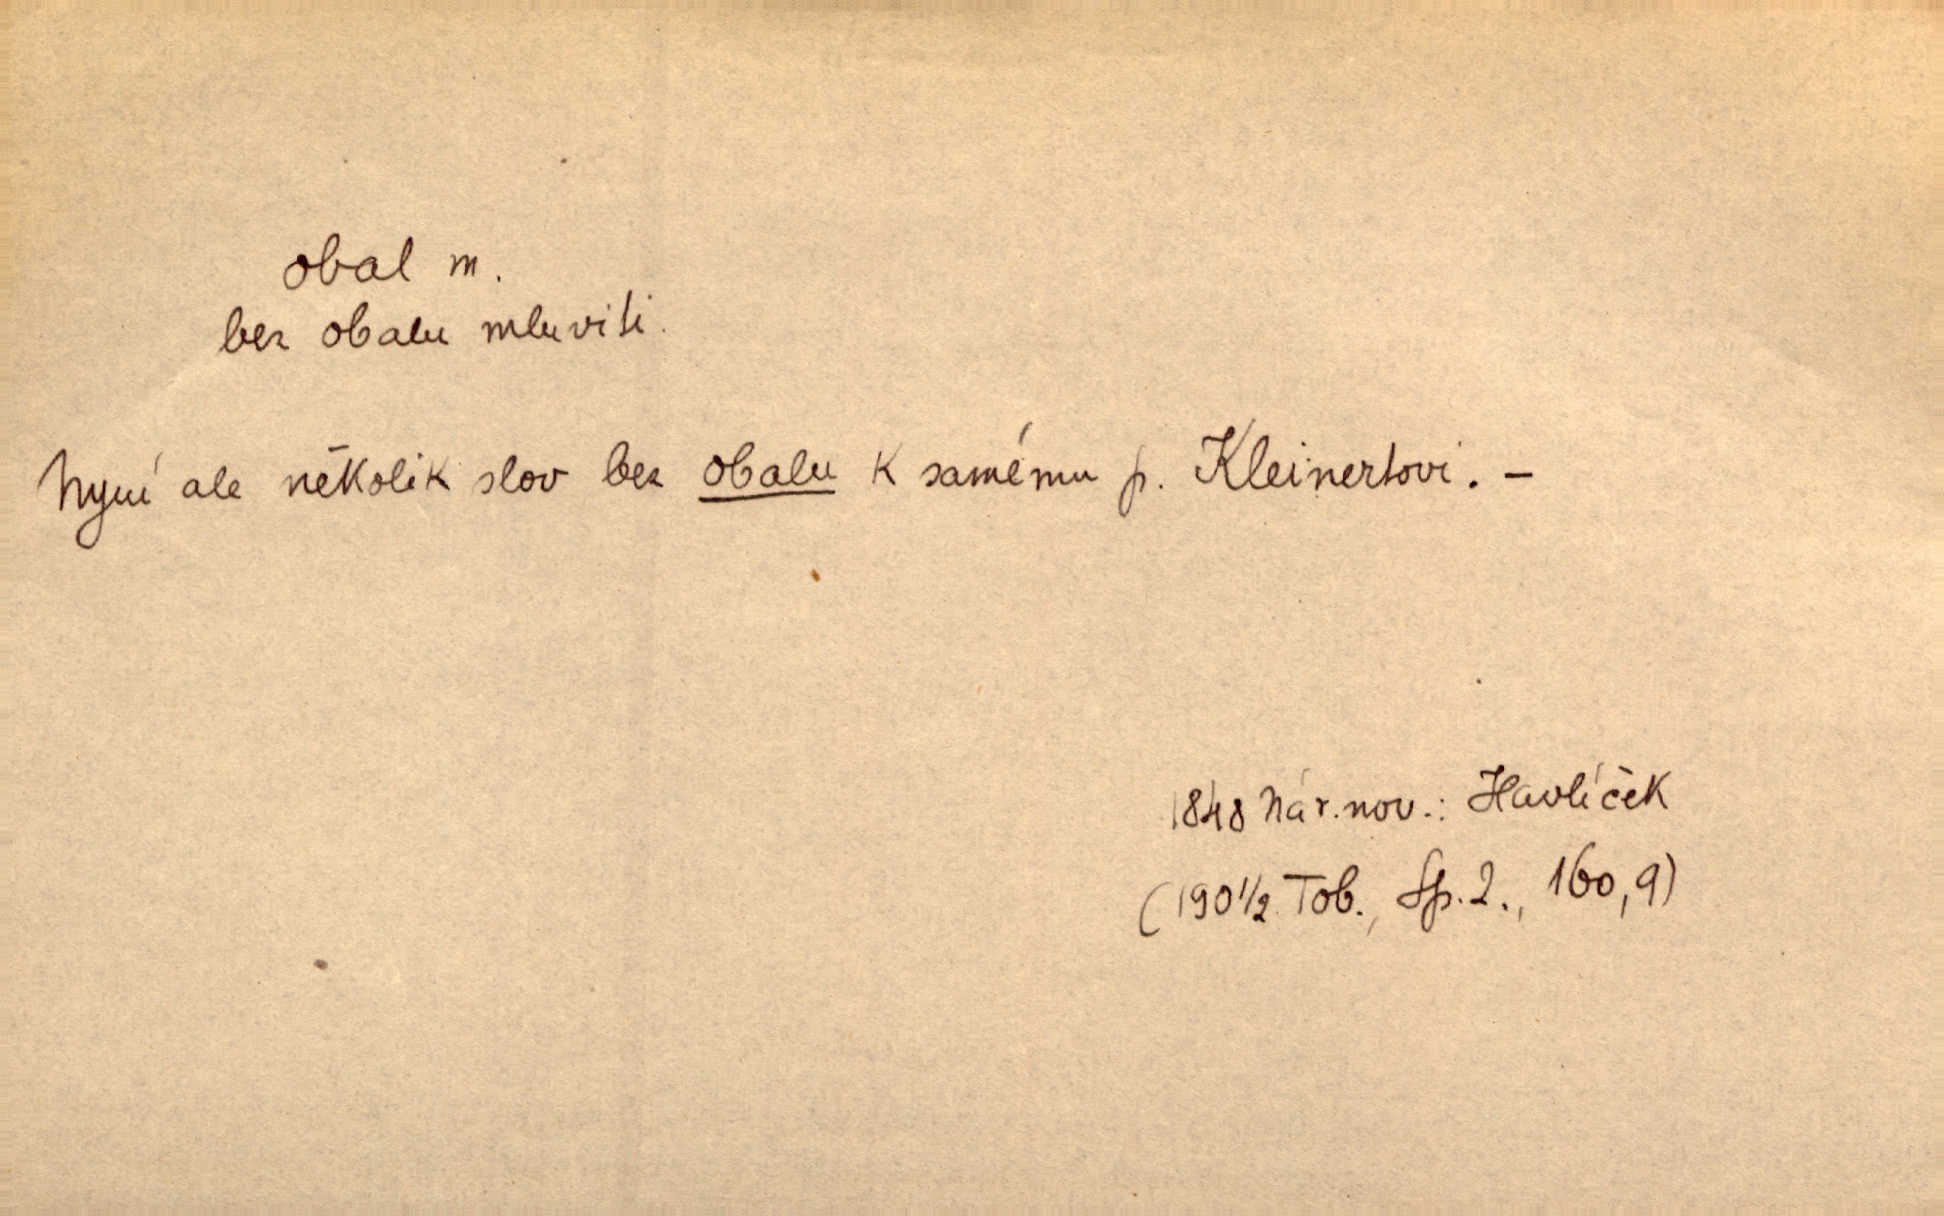 obal m.
bez obalu mluviti.
Nyní ale několik slov bez obalu k samému p. Kleinertovi. –
1848 Nár. nov.: Havlíček
(190½ Tob., Sp. 2., 160,9)